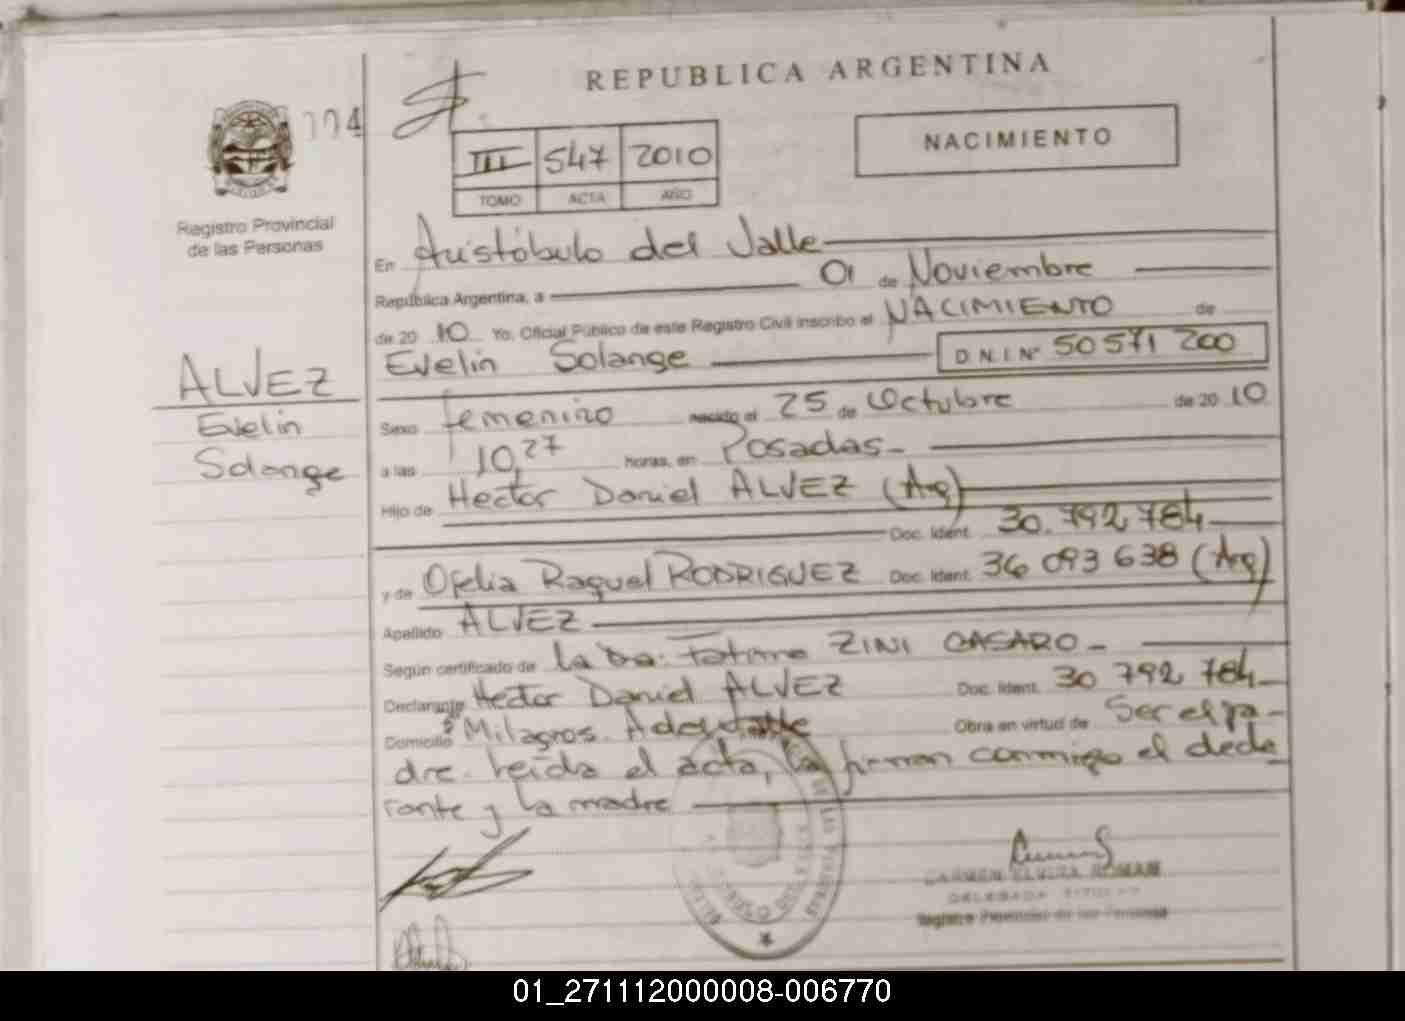 REPUBLICA ARGENTINA
104
NACIMIENTO
III 547 2010
TOMO ACTA AÑO
Registro Provincial
de las Personas
En Aristóbulo del Valle
República Argentina, a 01 de Noviembre
de 20 10 Yo, Oficial Público de este Registro Civil inscribo el NACIMIENTO de
Evelin Solange D.N.I. Nº 50 571 200
ALVEZ
Evelin
Solange
Sexo femenino nacido el 25 de Octubre de 20 10
a las 10,27 horas, en Posadas
Hijo de Hector Daniel ALVEZ (Arg)
Doc. Ident. 30.792.784
y de Ofelia Raquel RODRIGUEZ Doc. Ident. 36 093 638 (Arg)
Apellido ALVEZ
Según certificado de la Dra. Fatima ZINI CASARO
Declarante Hector Daniel ALVEZ Doc. Ident. 30 792 784
Domicilio Bº Milagros. A del Valle Obra en virtud de Ser el pa-
dre. leída el acta, la firman conmigo el decla
rante y la madre
CARMEN ELVIRA ROMAN
DELEGADA TITULAR
Registro Provincial de las Personas
01_271112000008-006770